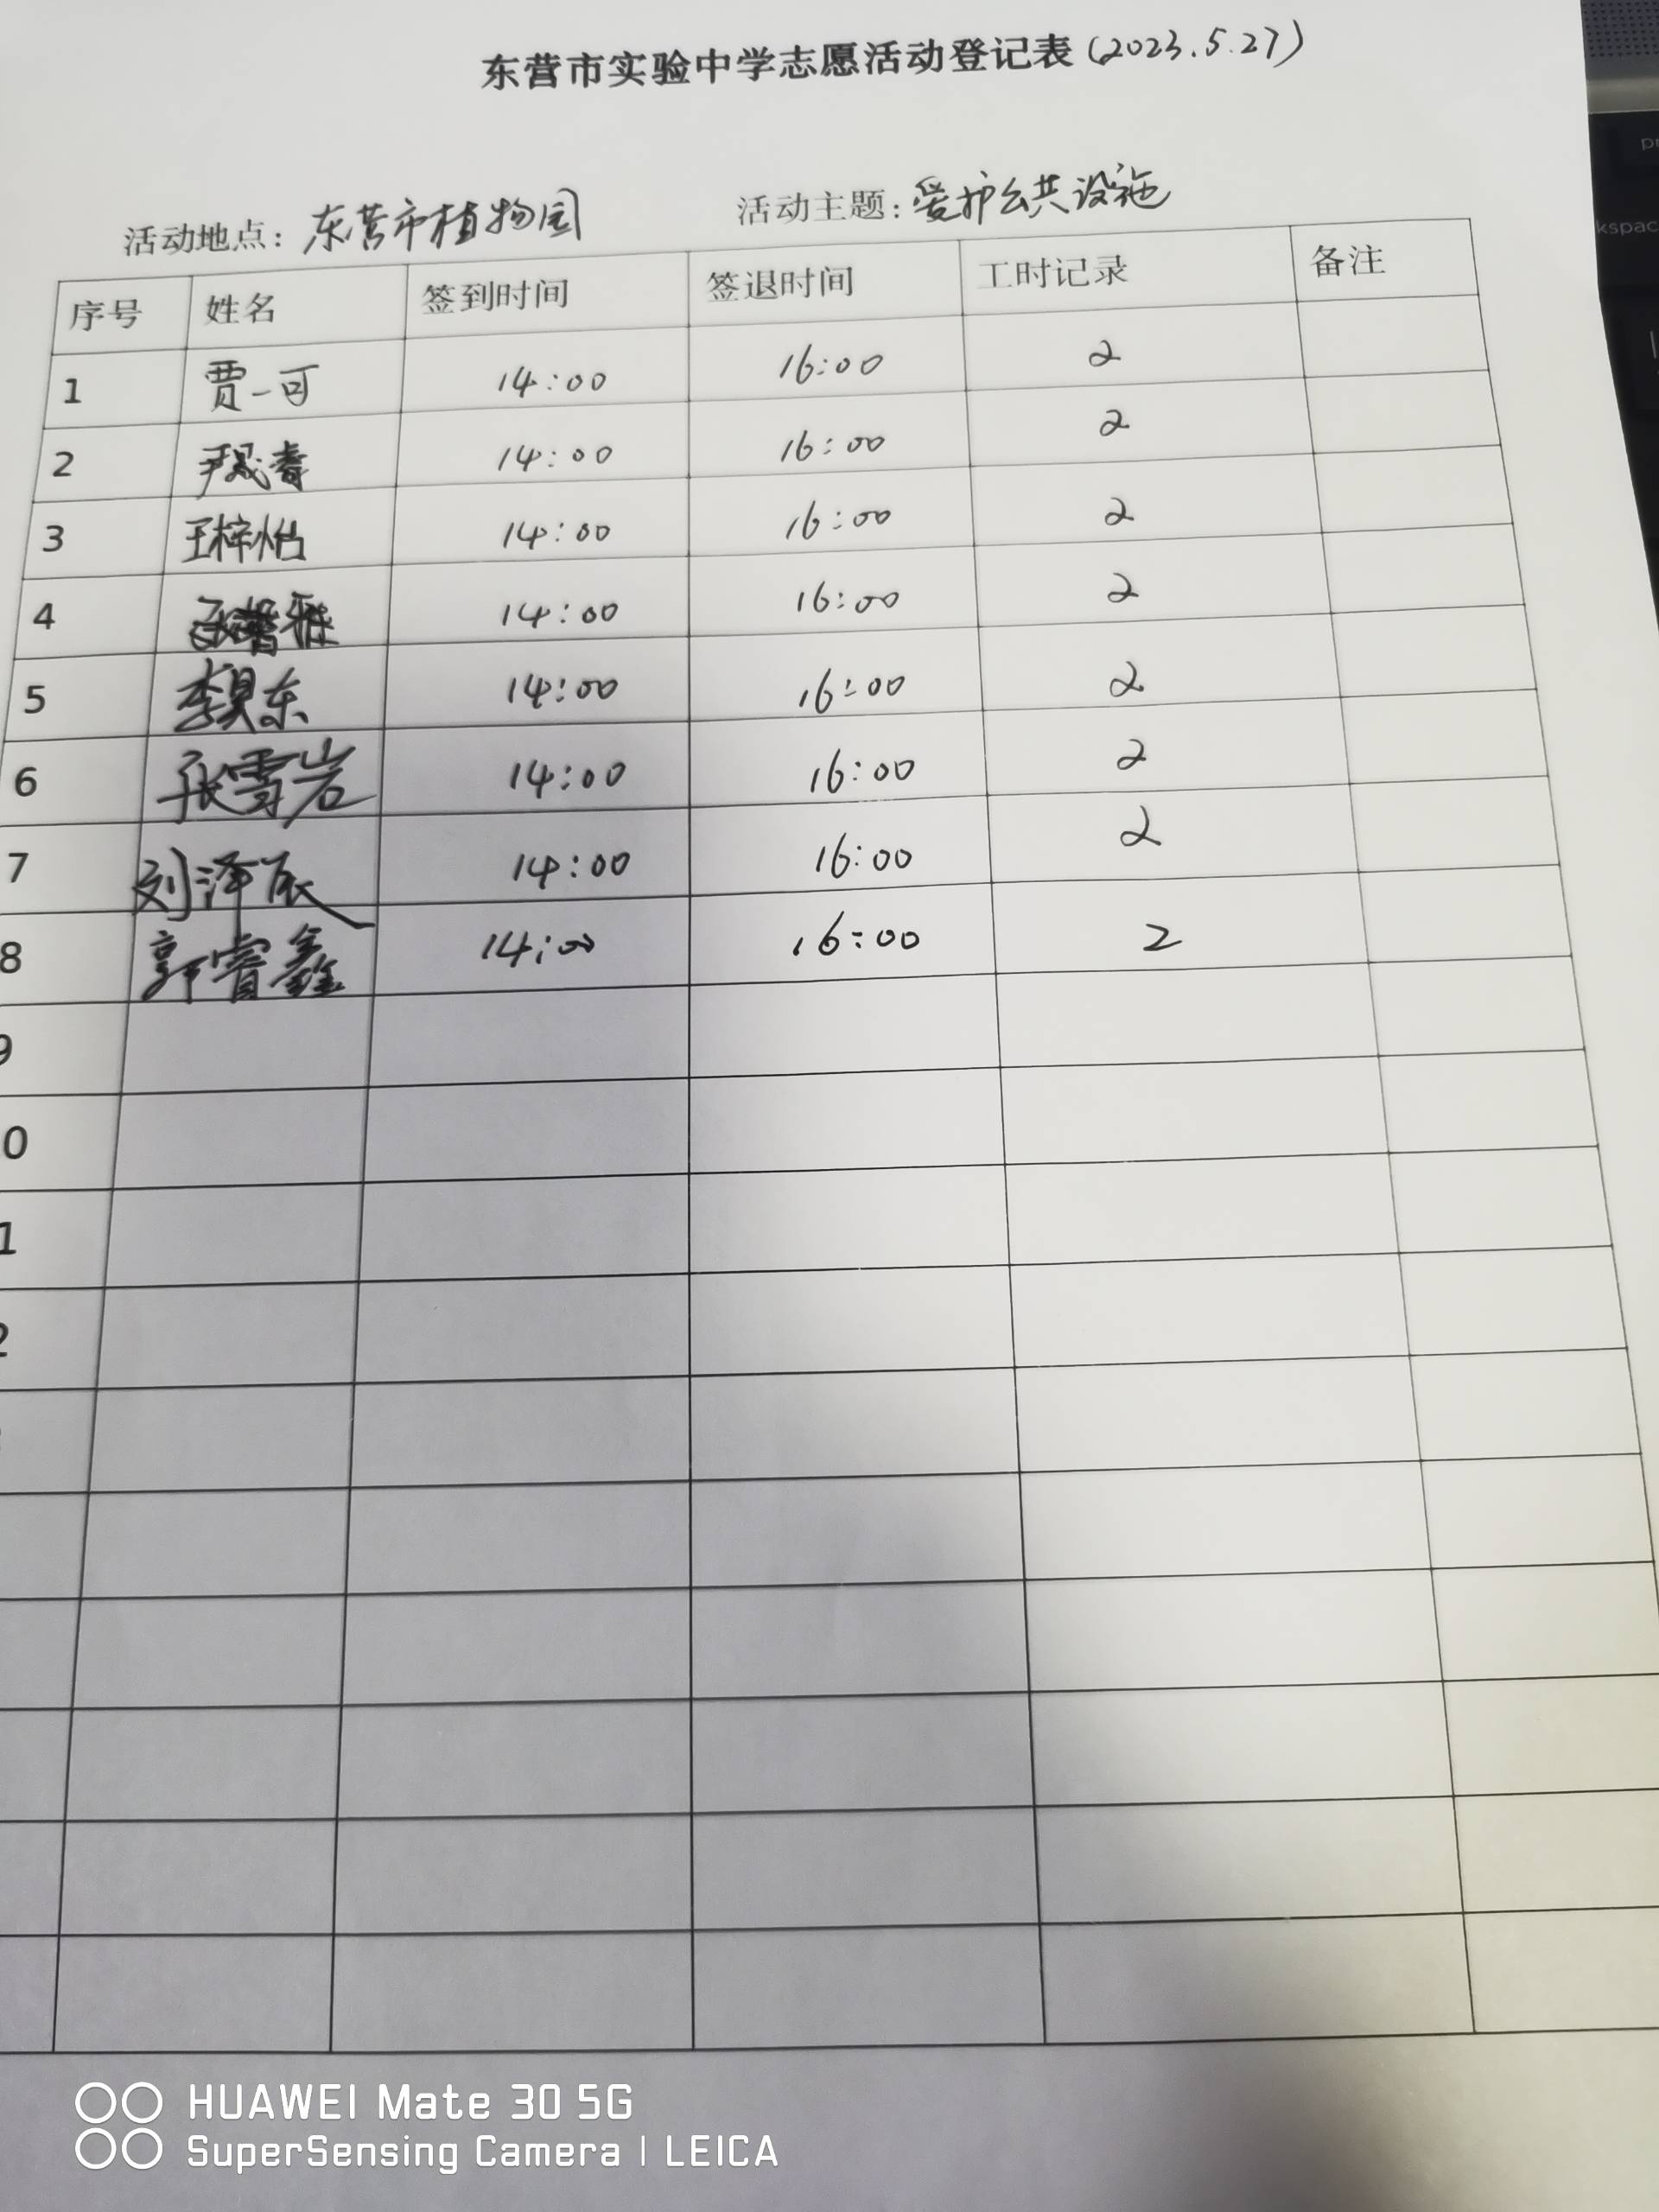 东营市实验中学志愿活动登记表(2023.5.27)
活动地点: 东营市植物园 活动主题: 爱护公共设施
序号 姓名 签到时间 签退时间 工时记录 备注
1 贾一可 14:00 16:00 2
2 14:00 16:00 2
3 王梓怡 14:00 16:00 2
4 14:00 16:00 2
5 李昊东 14:00 16:00 2
6 张雪岩 14:00 16:00 2
7 刘泽辰 14:00 16:00 2
8 郭睿鑫 14:00 16:00 2
9
0
1
2
HUAWEI Mate 30 5G
SuperSensing Camera | LEICA